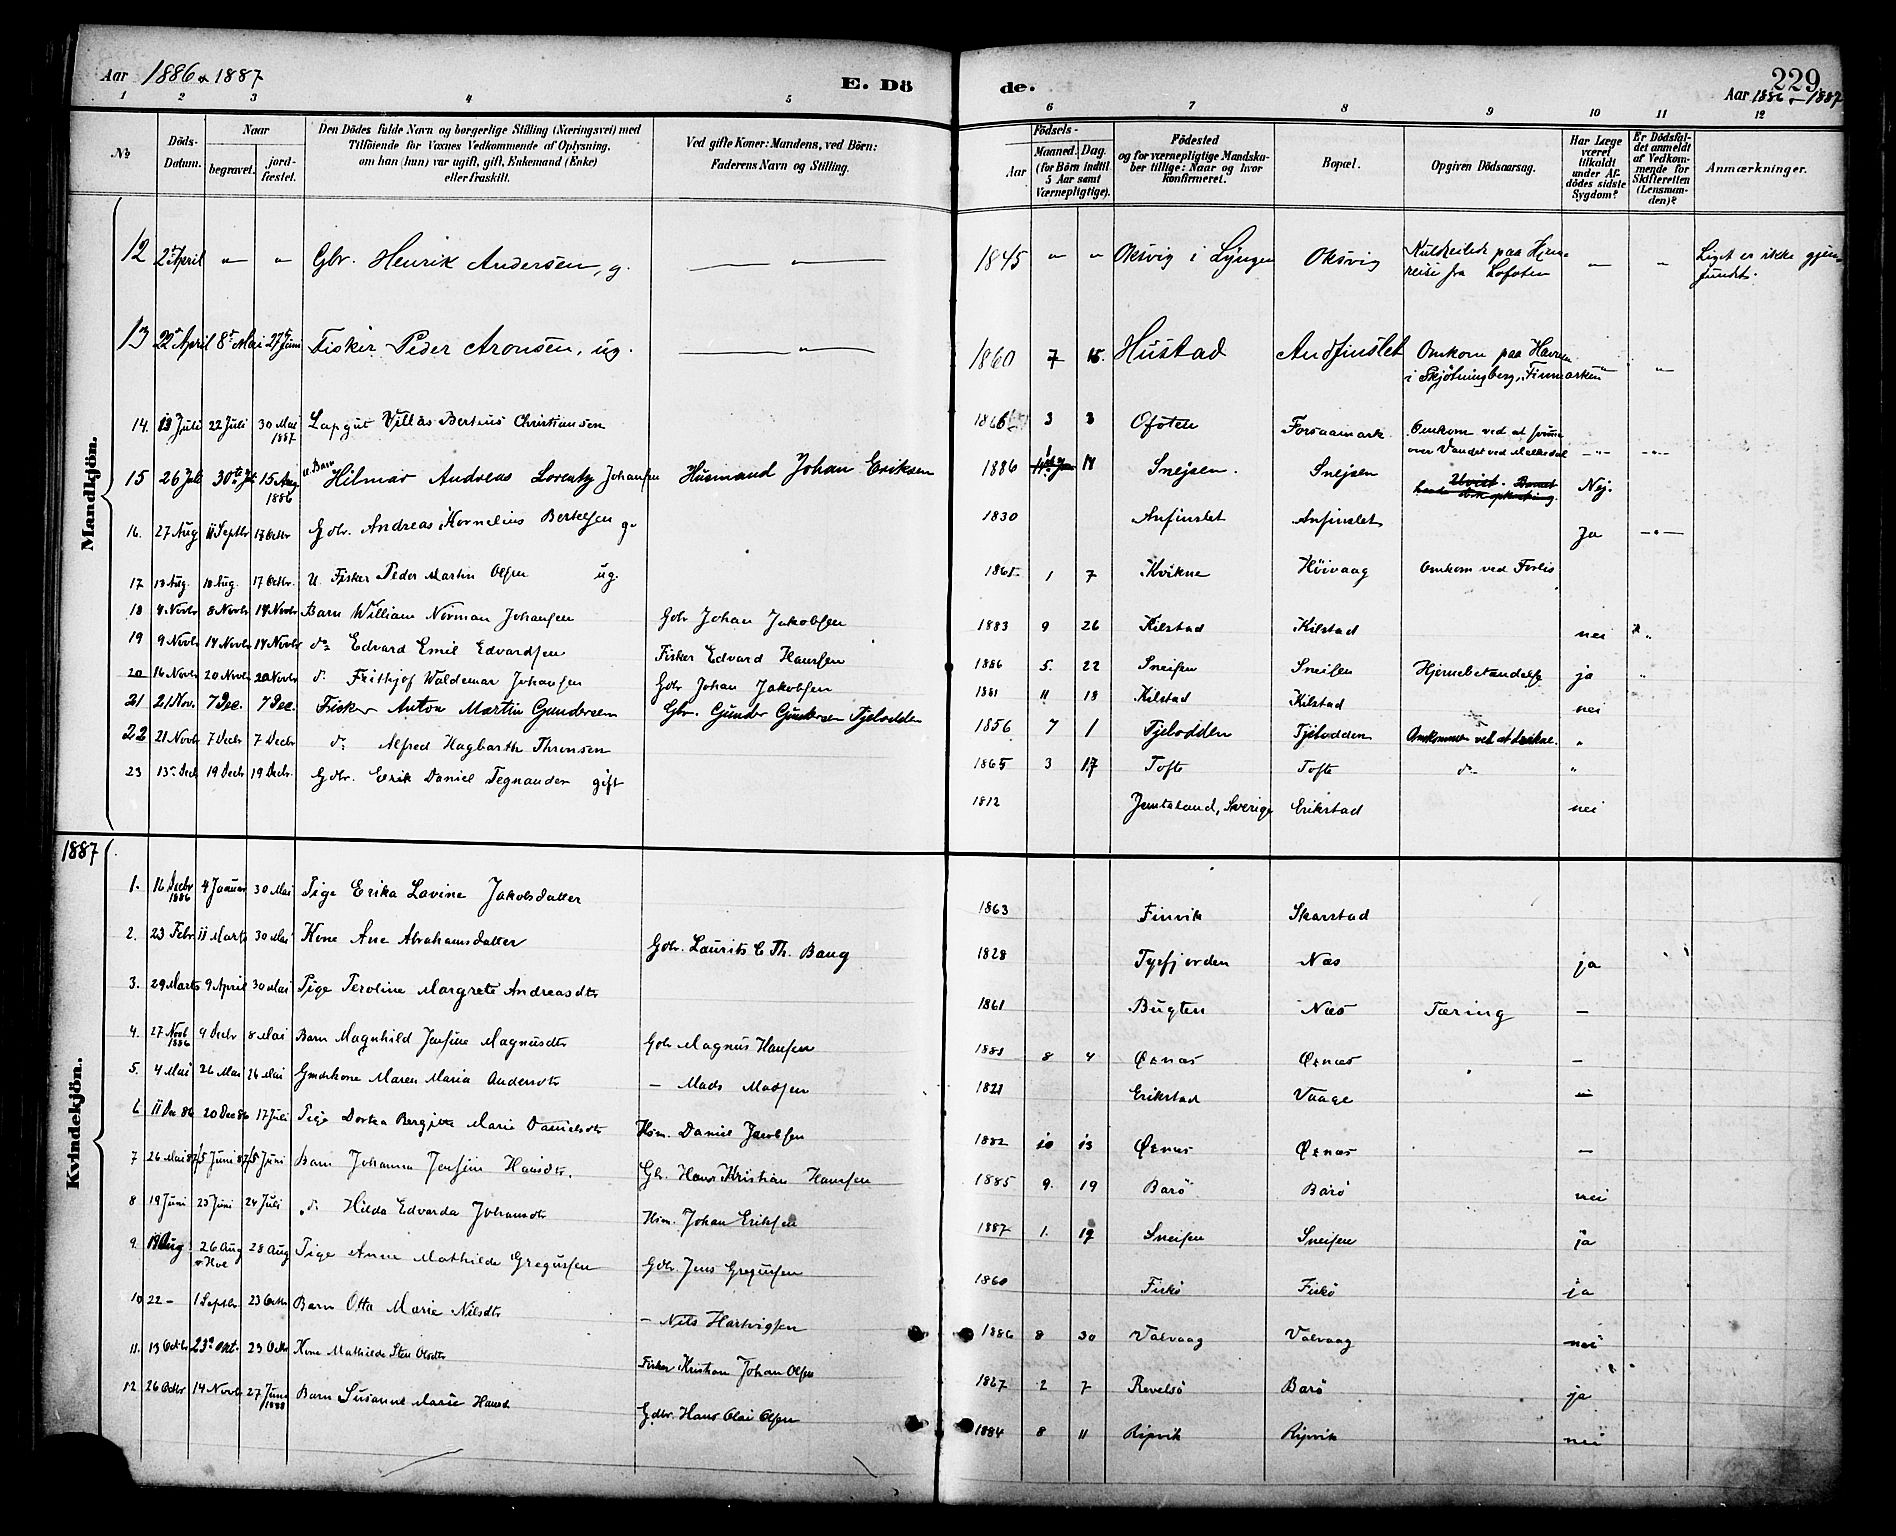 Aar 1886 & 1887
E. Dö de.
229
Aar 1886 – 1887
1 2 3 4 5 6 7 8 9 10 11 12
No
Döds-Datum.
Naar
begravet.
jord-fæstet.
Den Dödes fulde Navn og borgerlige Stilling (Næringsvei) med
Tilföiende for Voxnes Vedkommende af Oplysning,
om han (hun) var ugift, gift, Enkemand (Enke)
eller fraskilt.
Ved gifte Koner: Mandens, ved Börn:
Faderens Navn og Stilling.
Födsels-
Aar
Maaned. Dag.
(for Börn indtil
5 Aar samt
Værnepligtige).
Födested
og for værnepligtige Mandska-
ber tillige: Naar og hvor
konfirmeret.
Bopæl.
Opgiven Dödsaarsag.
Har Læge
været
tilkaldt
under Af-
dödes sidste
Sygdom?
Er Dödsfal-
det anmeldt
af Vedkom-
mende for
Skifteretten
(Lensman-
den)?
Anmærkninger.
Mandkjön.
12 2 April " " Gbr. Henrik Andersen, g. — " — 1845 " " Oksvig i Lyngen Oksvig Kuldseilede paa Hjem- — " Liget er ikke gjen-
reise fra Lofoten fundet.
13 22 April 8de Mai 27 Juni Fisker Peder Aronsen, ug. — " — 1860 7 15. Hustad Andfinslet Omkom paa Havnen
i Skjötningberg, Finmarken "
14. 13 Juli 22 Juli 30 Mai 1887 Lapgut Villas Bertius Christiansen 1866 3 3 Ofoten Forsaamark Omkom ved at svømme
over Vandet ved Melkedal — " —
15 26 Juli 30te Jul 15 Aug 1886 u. Barn Hilmar Andreas Lorentz Johansen Husmand Johan Eriksen 1886 18 Snejsen. Snejsen Nej.
16. 27 Aug 11 Septbr 17 Octbr Gdbr. Andreas Kornelius Bertelsen g. 1830 Anfinslet Anfinslet Ja — " —
17 13 Aug. 18 Aug. 17 Octbr. U. Fisker Peder Martin Olsen ug. 1865 1 7 Kvikne Höivaag Omkom ved Forlis
18 4 Novbr 8 Novbr 14 Novbr Barn William Norman Johansen Gdbr Johan Jakobsen 1883 9 26 Kilstad Kilstad nei "
19 9 Novbr 14 Novbr 14 Novbr do Edvard Emil Edvardsen Fisker Edvard Hansen 1886 5. 22 Sneisen Sneisen Hjernebetændelse ja "
20 16 Novbr 20 Novbr 20 Novbr do Frithjof Waldemar Johansen Gdbr Johan Jakobsen 1881 11 18 Kilstad Kilstad nei
21 21 Nov. 7 Dec. 7 Dec. Fisker Anton Martin Gundersen Gbr. Gunder Gundersen Tjelodden 1856 7 1 Tjelodden Tjelodden Omkommen ved at drukne. "
22 21 Novbr 7 Decbr 7 Decbr do Alfred Hagbarth Thronsen 1865 3 17 Tofte Tofte do "
23 13 Decb 19 Decbr 19 Decbr. Gdbr. Eerik Daniel Tegnander gift 1812 Jemteland, Sverige Erikstad nei
1887
Kvindekjön.
1. 16 Decbr 1886 4 Januar 30 Mai Pige Erika Lavine Jakobsdatter 1863 Finvik Skarstad
2. 23 Febr 11 Marts 30 Mai Kone Ane Abrahamsdatter Gdbr. Laurits C Th. Bang 1828 Tysfjorden Næs ja
3. 29 Marts 9 April 30 Mai Pige Peroline Margrete Andreasdtr 1861 Bugten Næs Tæring —
4. 27 Novb 1886 9 Decbr 8 Mai Barn Magnhild Jensine Magnusdtr Gdbr Magnus Hansen 1881 8 4 Ørnæs Ørnæs —
5. 4 Mai 26 Mai 26 Mai Gmdskone Maren Maria Andersdtr — Mads Madsen 1821 Erikstad Vaage —
6 11 Dec 86 20 Dec 86 17 Juli Pige Dortea Bergitte Marie Danielsdtr Hsm. Daniel Jacobsen 1882 10 13 Ørnæs Ørnæs —
7 26 Mai 87 5 Juni 87 5 Juni Barn Johanna Jensine Hansdtr. Gbr. Hans Kristian Hansen 1885 9. 19 Barö Barö nei
8 19 Juni 23 Juni 24 Juli do Hilda Edvarda Johansdtr Hsm. Johan Eriksen 1887 1. 19 Sneisen Sneisen ja
9. 19 Aug 26 Aug 28 Aug Pige Anna Mathilde Gregussen Gdbr Jens Gregusen 1860 Fiskö Fiskö ja
10 22 – 1 Septbr 23 Octbr Barn Otta Marie Nilsdtr — Nils Hartvigsen 1886 8 30 Valvaag Valvaag nei
11. 13 Octbr 23de okt. 23 Octbr Kone Mathilde Sten Olsdtr Fisker Kristian Johan Olsen 1827 2 7 Revelsö Barö ja
12. 26 Octbr 14 Novbr 27 Juni 1888 Barn Susanne Marie Hansd Gdbr. Hans Olai Olsen 1884 8 11 Ripvik Ripvik nei